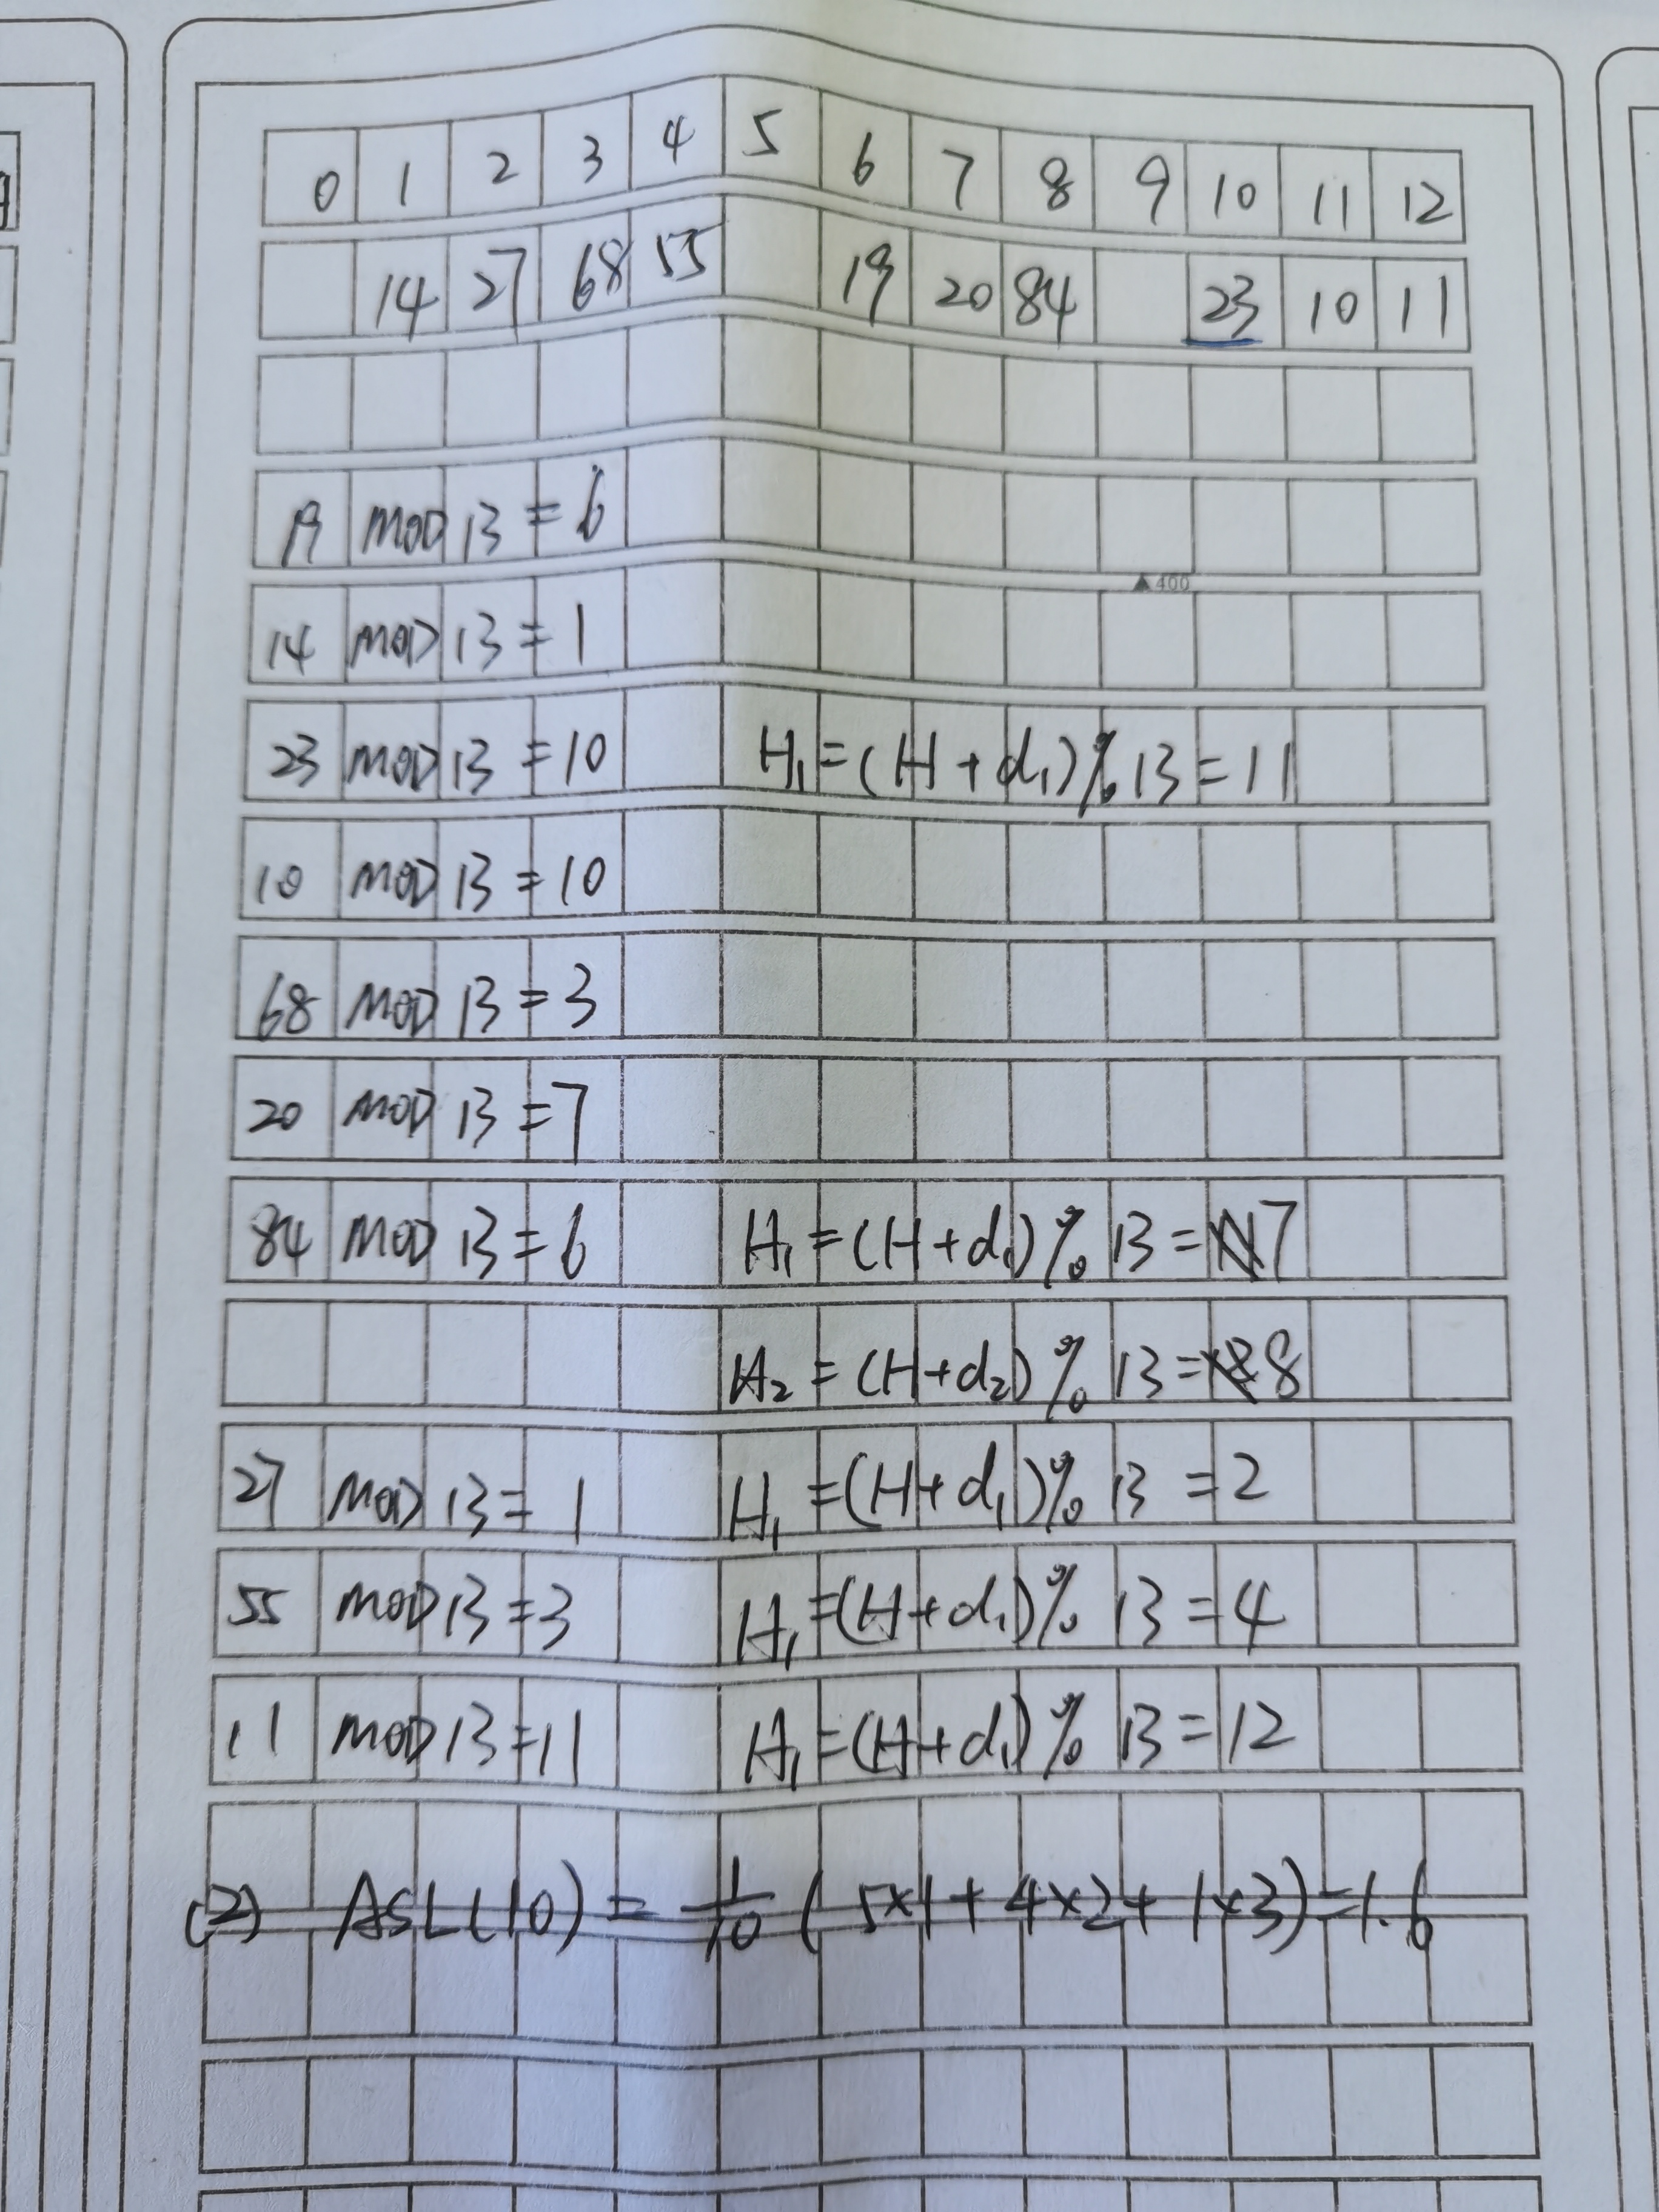 0 1 2 3 4 5 6 7 8 9 10 11 12
14 27 68 55 19 20 84 23 10 11
19 MOD 13 = 6
▲400
14 MOD 13 = 1
23 MOD 13 = 10 H₁ = (H + d₁) % 13 = 11
10 MOD 13 = 10
68 MOD 13 = 3
20 MOD 13 = 7
84 MOD 13 = 6 H₁ = (H + d₁) % 13 = 7
H₂ = (H + d₂) % 13 = 8
27 MOD 13 = 1 H₁ = (H + d₁) % 13 = 2
55 MOD 13 = 3 H₁ = (H + d₁) % 13 = 4
11 MOD 13 = 11 H₁ = (H + d₁) % 13 = 12
(2) ASL(10) = 1/10 (5×1 + 4×2 + 1×3) = 1.6